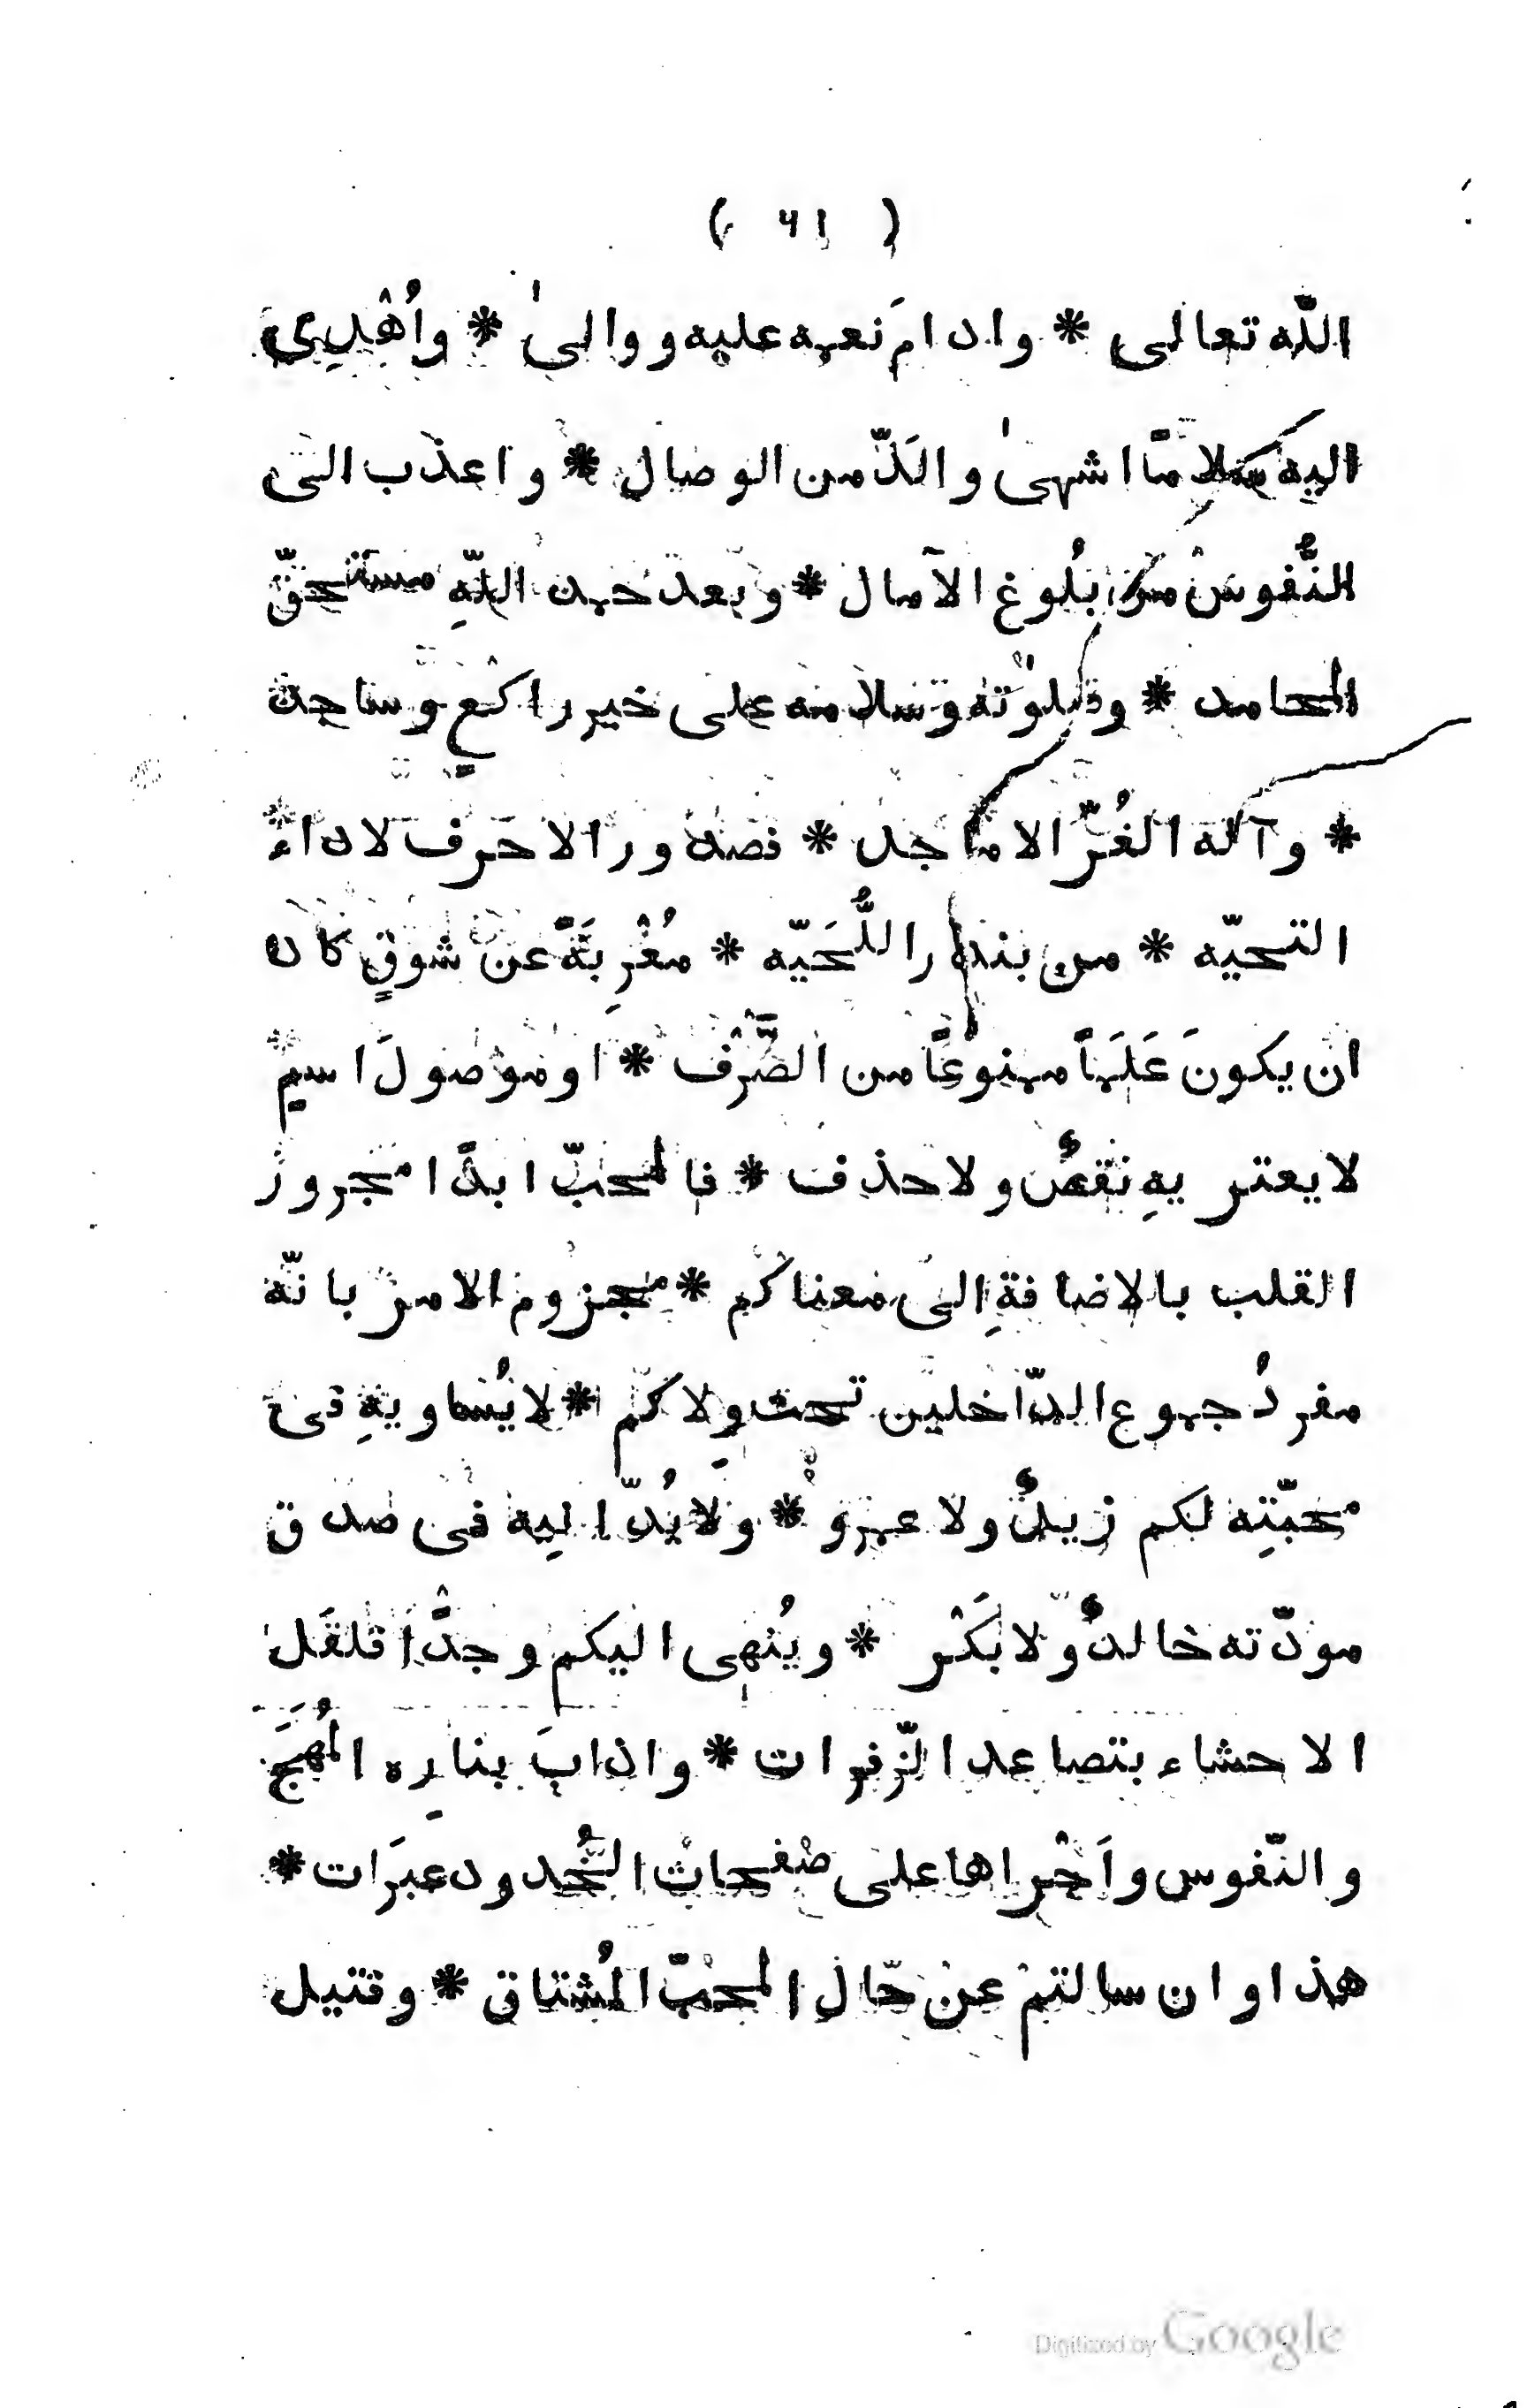 ( ٦١ )
اللّه تعالى * وادامَ نعمه عليه ووالىٰ * واُهْدِي
اليه سلامًا اشهىٰ والَذّ من الوصال * واعذب الى
النُّفوسْ من بُلوغ الآمال * وبعد حمد اللّهِ مستحقّ
المحامد * وصلوٰته وسلامه على خير راكعٍ وساجد
* وآله الغُرّ الاماجد * فصدور الاحرف لاداء
التحيّه * من بندر اللُّحَيّه * مُعْرِبَةً عن شوقٍ كاد
ان يكونَ عَلَماً ممنوعًا من الصَّرْف * او موصولَ اسمٍ
لا يعتريهِ نقصٌ ولا حذف * فالمحبّ ابدًا مجرور
القلب بالاضافةِ الى معناكم * مجزوم الامر بانّه
مفردُ جموع الدّاخلين تحت وِلاكم * لا يُساويهِ فى
محبّتِه لكم زيدٌ ولا عمرو * ولا يُدّانِيه فى صدق
مودّته خالدٌ ولا بَكْر * ويُنهِى اليكم وجْدًا قلقَل
الاحشاء بتصاعد الزّفرات * واذابَ بنارِه المُهَجَ
والنّفوس واَجْراها على صفحات الخُدود عبَرات *
هذا وان سالتمْ عن حال المحبّ المُشتاق * وقتيل
Digitized by Google